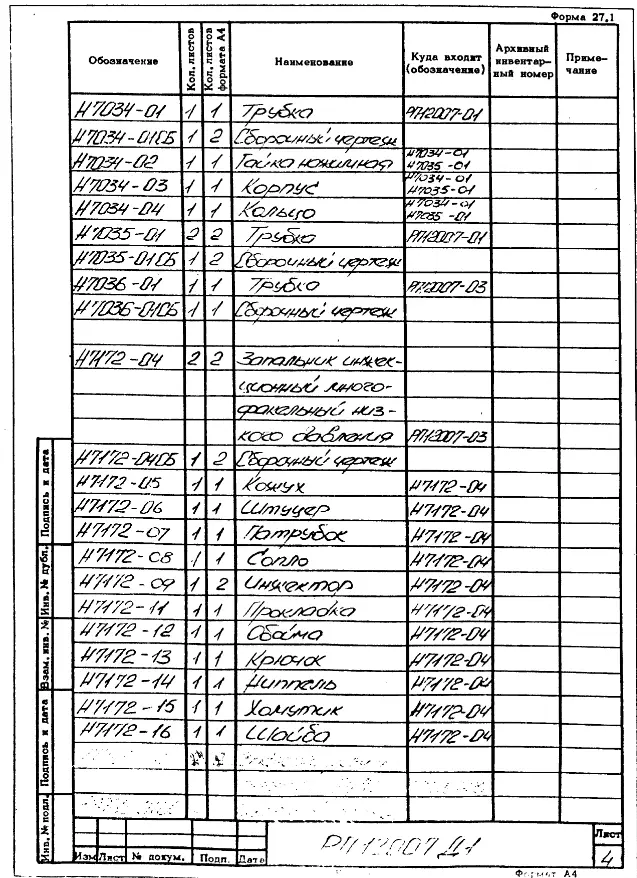 Форма 27.1
Обозначение Кол. листов Кол. листов формата А4 Наименование Куда входит (обозначение) Архивный инвентарный номер Примечание
Н7034-01 1 1 Трубка РП12007-01
Н7034-01СБ 1 2 Сборочный чертеж
Н7034-02 1 1 Гайка нажимная Н7034-01 Н7035-01
Н7034-03 1 1 Корпус Н7034-01 Н7035-01
Н7034-04 1 1 Кольцо Н7034-01 Н7035-01
Н7035-01 2 2 Трубка РП12007-01
Н7035-01СБ 1 2 Сборочный чертеж
Н7036-01 1 1 Трубка РП12007-03
Н7036-01СБ 1 1 Сборочный чертеж
Н7172-04 2 2 Запальник инжек-
ционный много-
факельный низ-
кого давления РП12007-03
Н7172-04СБ 1 2 Сборочный чертеж
Н7172-05 1 1 Кожух Н7172-04
Н7172-06 1 1 Штуцер Н7172-04
Н7172-07 1 1 Патрубок Н7172-04
Н7172-08 1 1 Сопло Н7172-04
Н7172-09 1 2 Инжектор Н7172-04
Н7172-11 1 1 Прокладка Н7172-04
Н7172-12 1 1 Обойма Н7172-04
Н7172-13 1 1 Крючок Н7172-04
Н7172-14 1 1 Ниппель Н7172-04
Н7172-15 1 1 Хомутик Н7172-04
Н7172-16 1 1 Шайба Н7172-04
Подпись и дата
Инв. № дубл.
Взам. инв. №
Подпись и дата
Инв. № подл.
Изм Лист № докум. Подп. Дата
РП12007 Д1
Лист
4
Формат А4